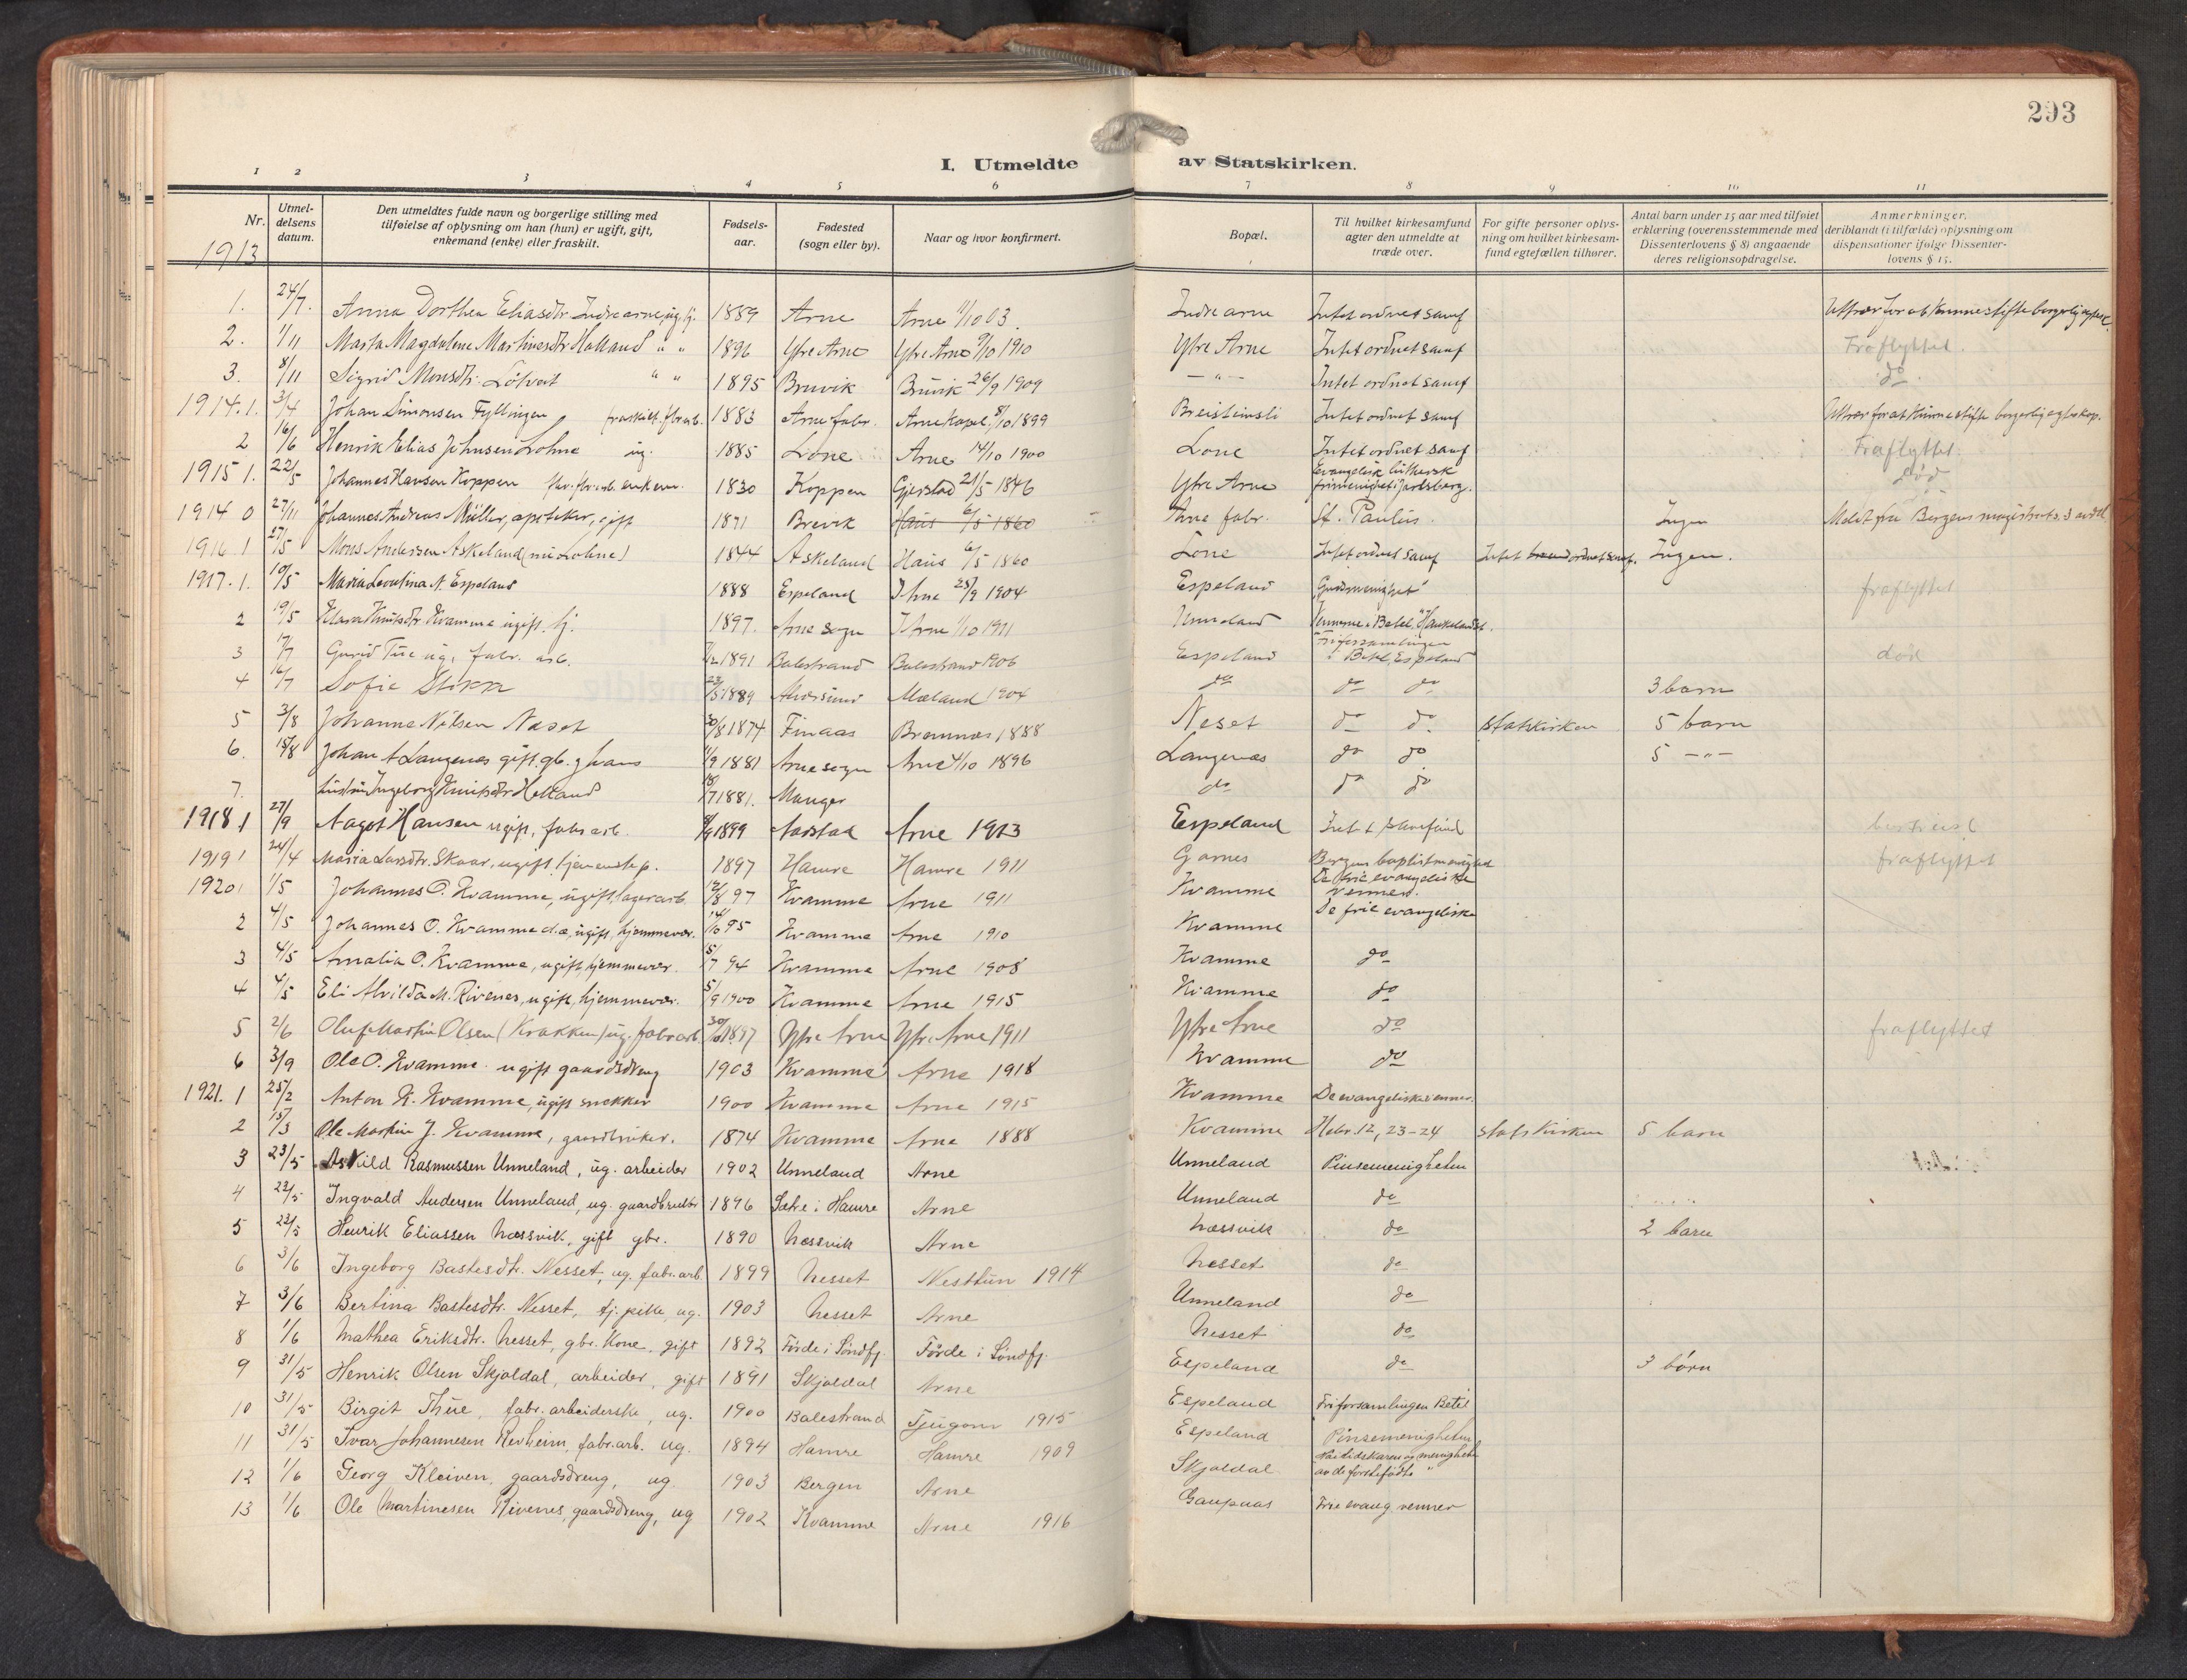 293
I. Utmeldte av Statskirken.
1 2 3 4 5 6 7 8 9 10 11
Nr.
Utmel-
delsens
datum.
Den utmeldtes fulde navn og borgerlige stilling med
tilføielse af oplysning om han (hun) er ugift, gift,
enkemand (enke) eller fraskilt.
Fødsels-
aar.
Fødested
(sogn eller by).
Naar og hvor konfirmert.
Bopæl.
Til hvilket kirkesamfund
agter den utmeldte at
træde over.
For gifte personer oplys-
ning om hvilket kirkesam-
fund egtefællen tilhører.
Antal barn under 15 aar med tilføiet
erklæring (overensstemmende med
Dissenterlovens § 8) angaaende
deres religionsopdragelse.
Anmerkninger,
deriblandt (i tilfælde) oplysning om
dispensationer ifølge Dissenter-
lovens § 15.
1913
1. 24/7. Anna Dorthea Eliasdtr. Indre arne, ug. tj. 1889 Arne Arne 1/10 03. Indre arne Intet ordnet samf
2. 1/11 Marta Magdalene Martinesdtr Halland " " 1896 Ytre Arne Ytre Arne 9/10 1910 Ytre Arne Intet ordnet samf Fraflyttet.
3. 8/11 Sigrid Monsdtr. " " 1895 Bruvik Bruvik 26/9 1909 — " — Intet ordnet samf do.
1914. 1. 3/4 Johan Simonsen Fyllingen fraskilt. 1883 Arne fabr. Arne kapel. 8/10 1899 Breisteinsli Intet ordnet samf
2 16/6 Henrik Elias Johnsen Lohne ug. 1885 Lone Arne 14/10 1900 Lone Intet ordnet samf Fraflyttet.
1915 1. 22/5 Johannes Hansen Koppen enkem. 1830 Koppen Gjerstad 21/5 1846 Ytre Arne Evangelisk luthersk frimenighet i Jarlsberg. Død
1914 0 27/11 Johannes Andreas Müller, apoteker, gift 1871 Brevik Haus 6/5 1860 Arne fabr. St. Paulus. Ingen Meldt fra Bergens magistrats 3 avdel
1916 1 27/5 Mons Andersen Askeland (nu Lohne) 1844 Askeland Haus 6/5 1860 Lone Intet ordnet samf Intet ordnet samf. Ingen.
1917. 1. 10/5 Maria Leontina N. Espeland 1888 Espeland I Arne 25/9 1904 Espeland "Gudsmenighet" fraflyttet
2 19/5 Klara Knutsdtr Kvamme ugift. tj. 1897. Arne sogn I Arne 1/10 1911 Unneland
3 17/7 Gurid Tue ug., fabr. arb. 1891 Balestrand Balestrand 1906 Espeland Friforsamlingen i Betel, Espeland død
4 16/7 Sofie 1889 Alversund Mæland 1904 do do do 3 barn
5 3/8 Johanne Nilsen Næset 30/8 1874 Finaas Bremnes 1888 Neset do do. statskirken 5 barn
6. 15/8 Johan A Langenes gift. gb. 11/9 1881 Arne sogn Arne 4/10 1896 Langenæs do do 5 — " —
7. Ingeborg Knutsdtr Helland 1881. Manger do do do
1918 1 27/9 Aagot Hansen ugift, fabr arb. 1899 Arne 1913 Espeland
1919 1 24/4 Maria Larsdtr. Skaar, ugift, tjenestep. 1897 Hamre Hamre 1911 Garnes Bergens baptistmenighed fraflyttet
1920 1 1/5 Johannes O. Kvamme, ugift, lagerarb. 97 Kvamme Arne 1911 Kvamme De frie evangeliske venner.
2 4/5 Johannes O. Kvamme d.æ, ugift, hjemmevær. 14/10 95 Kvamme Arne 1910 Kvamme De frie evangeliske
3 4/5 Amalia O. Kvamme, ugift, hjemmevær. 5/7 94 Kvamme Arne 1908 Kvamme do
4 4/5 Eli Alvilda M. Rivenes, ugift, hjemmevær. 5/9 1900 Kvamme Arne 1915 Kvamme do
5 2/6 Oluf Martin Olsen (Krakken) ug. fabr arb. 30/10 1897 Ytre Arne Ytre Arne 1911 Ytre Arne do fraflyttet
6 3/9 Ole O. Kvamme. ugift gaardsdreng 1903 Kvamme Arne 1918 Kvamme do
1921. 1 25/2 Anton K. Kvamme, ugift snekker 1900 Kvamme Arne 1915 Kvamme De evangeliske venner.
2 15/3 Ole Martin J. Kvamme, gaardbruker. 1874 Kvamme Arne 1888 Kvamme Hebr. 12, 23-24 statskirken 5 barn
3 23/5 Askild Rasmussen Unneland, ug. arbeider 1902 Unneland Arne Unneland Pinsemenigheten
4 22/5 Ingvald Andersen Unneland, ug. gaardbruker 1896 Sætre i Hamre Arne Unneland do
5 22/5 Henrik Eliassen Næssvik, gift gbr. 1890 Næssvik Arne Næssvik do 2 barn
6 3/6 Ingeborg Bastesdtr. Nesset, ug. fabr. arb. 1899 Nesset Nesttun 1914 Nesset do
7 3/6 Bertina Bastesdtr. Nesset, tj. pike ug. 1903 Nesset Arne Unneland do
8 1/6 Mathea Eriksdtr. Nesset, gbr. kone, gift 1892 Förde i Söndfj. Förde i Söndfj. Nesset do
9 31/5 Henrik Olsen Skjoldal, arbeider, gift 1891 Skjoldal Arne Espeland do 3 börn
10 31/5 Birgit Thue, fabr. arbeiderske, ug. 1900 Balestrand Tjugom 1915 Espeland Friforsamlingen Betel
11 31/5 Ivar Johannesen Revheim, fabr. arb. ug. 1894 Hamre Hamre 1909 Espeland Pinsemenigheten
12 1/6 Georg Kleiven, gaardsdreng, ug. 1903 Bergen Arne Skjoldal av de förstefödte "
13 1/6 Ole Martinesen Rivenes, gaardsdreng, ug 1902 Kvamme Arne 1916 Gaupaas Frie evang. venner